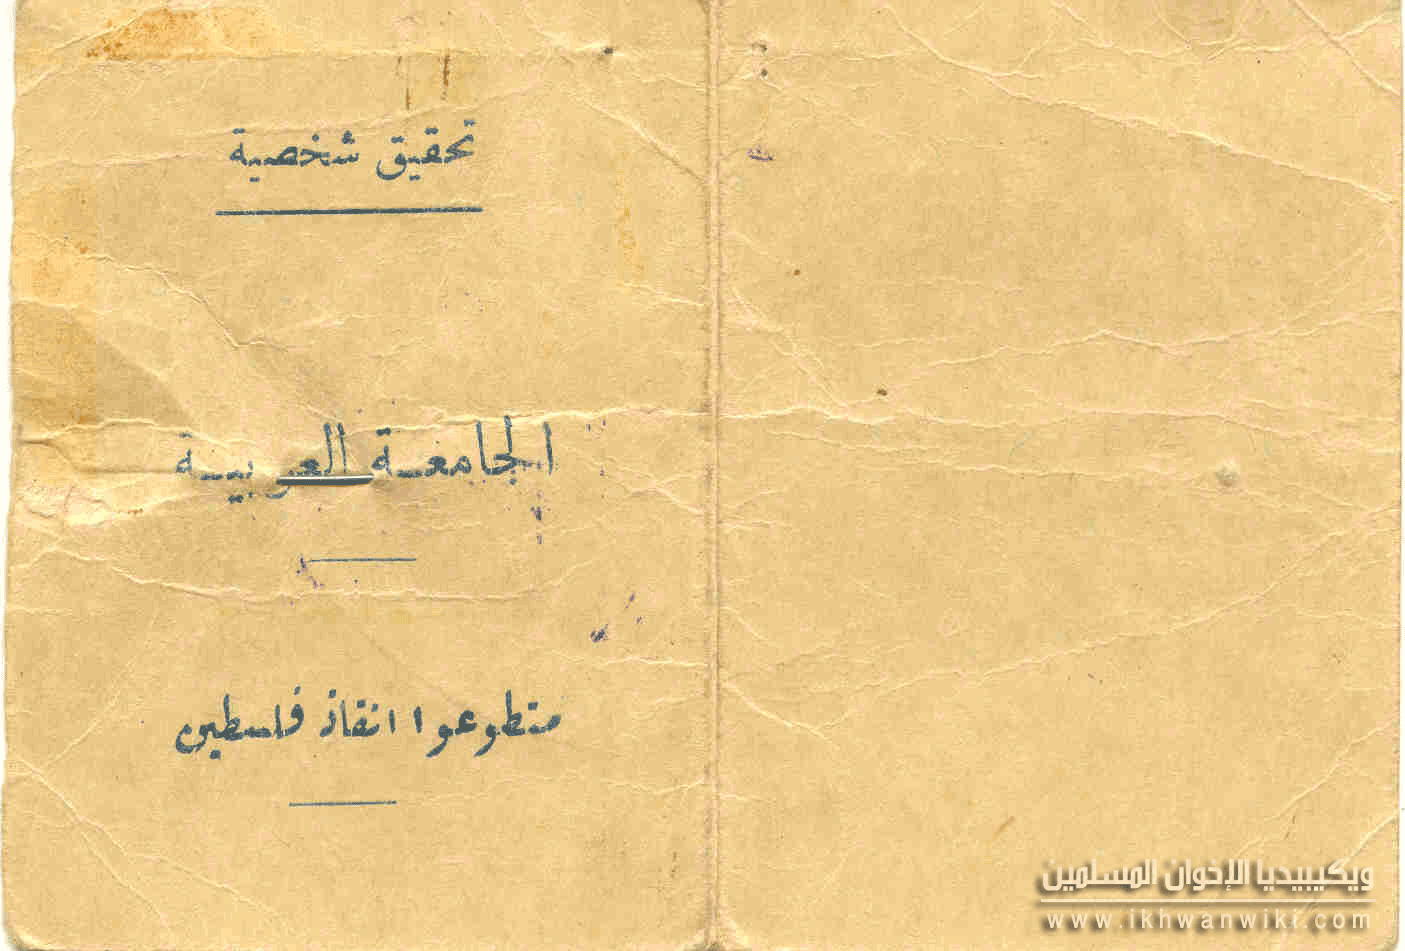 تحقيق شخصية
الجامعة العربية
متطوعوا انقاذ فلسطين
ويكيبيديا الإخوان المسلمين
www.ikhwanwiki.com